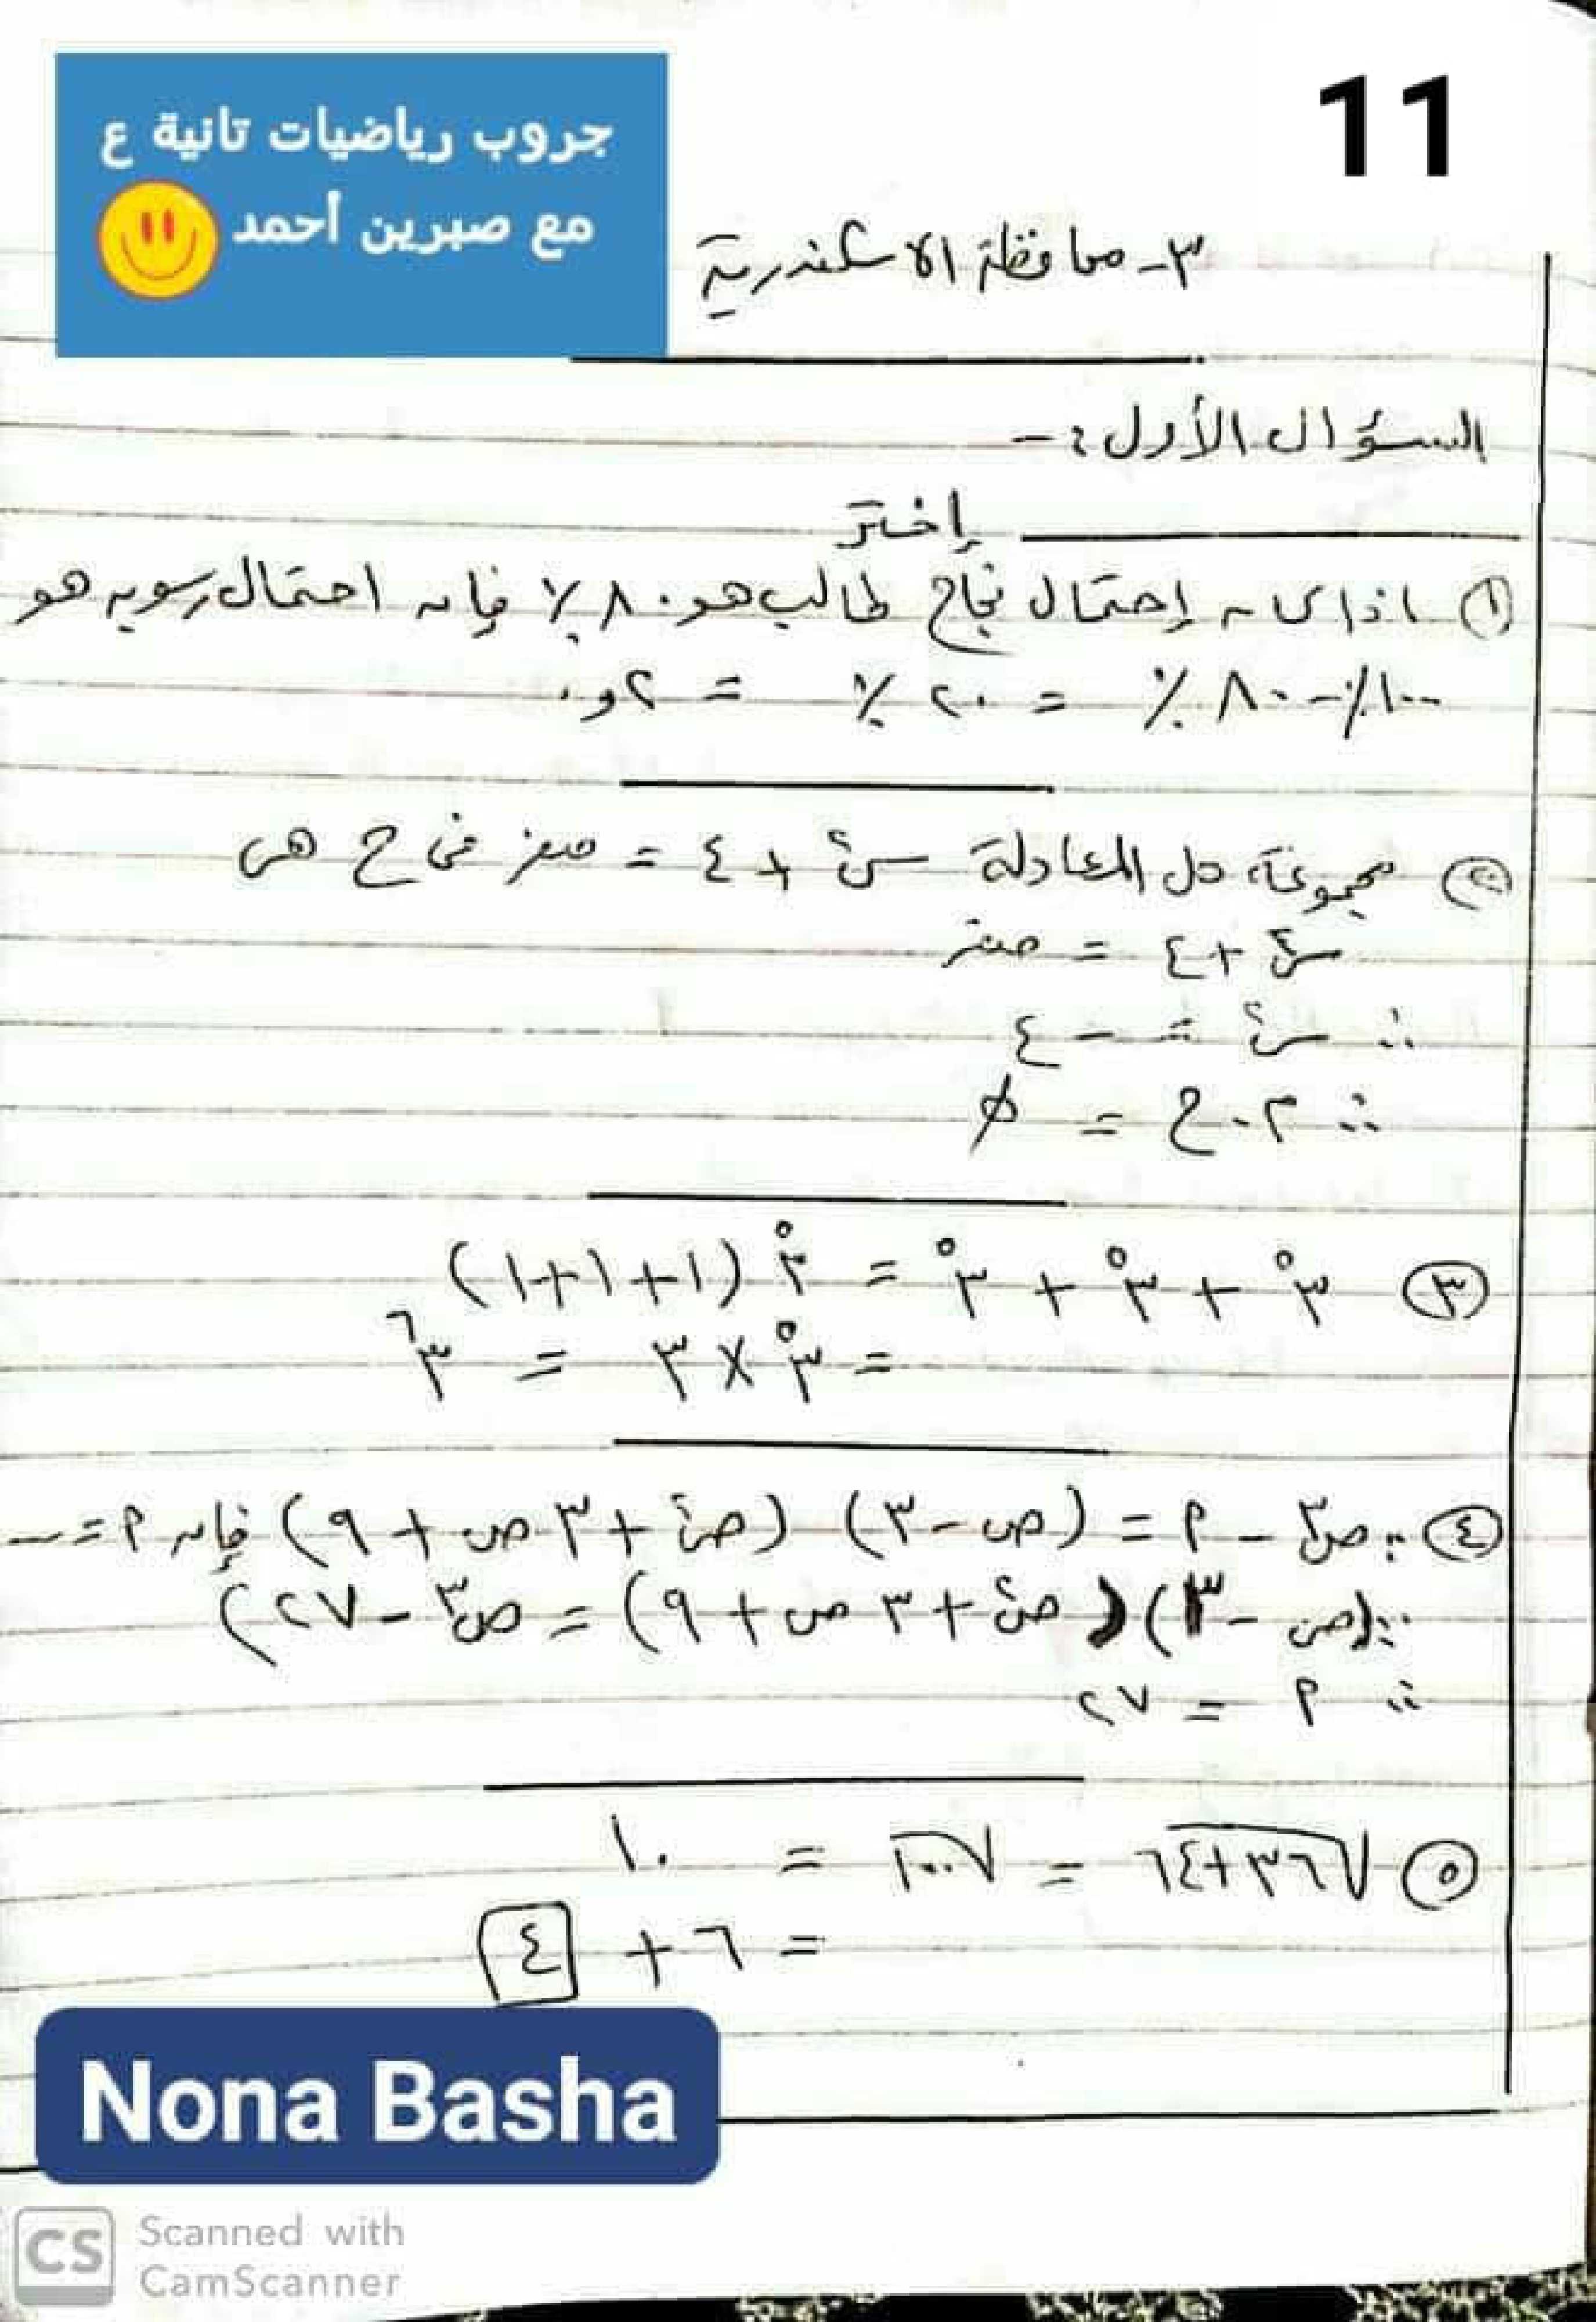 11
جروب رياضيات تانية ع
مع صبرين أحمد
٣- محافظة الاسكندرية
السؤال الأول :-
إختر
① اذا كان إحتمال نجاح طالب هو ٨٠٪ فإن احتمال رسوبه هو
١٠٠٪ - ٨٠٪ = ٢٠٪ = ٢و٠
② مجموعة حل المعادلة س٢ + ٤ = صفر فى ح هى
س٢ + ٤ = صفر
∴ س٢ = - ٤
∴ م.ح = ∅
③ ٣^٥ + ٣^٥ + ٣^٥ = ٣^٥ (١+١+١)
= ٣^٥ × ٣ = ٣^٦
④ ∵ ص٣ - م = (ص - ٣) (ص٢ + ٣ص + ٩) فإن م = --
∵ (ص - ٣) (ص٢ + ٣ص + ٩) = ص٣ - ٢٧)
∴ م = ٢٧
⑤ √٣٦+٦٤ = √١٠٠ = ١٠
= ٦ + ٤
Nona Basha
CS Scanned with
CamScanner